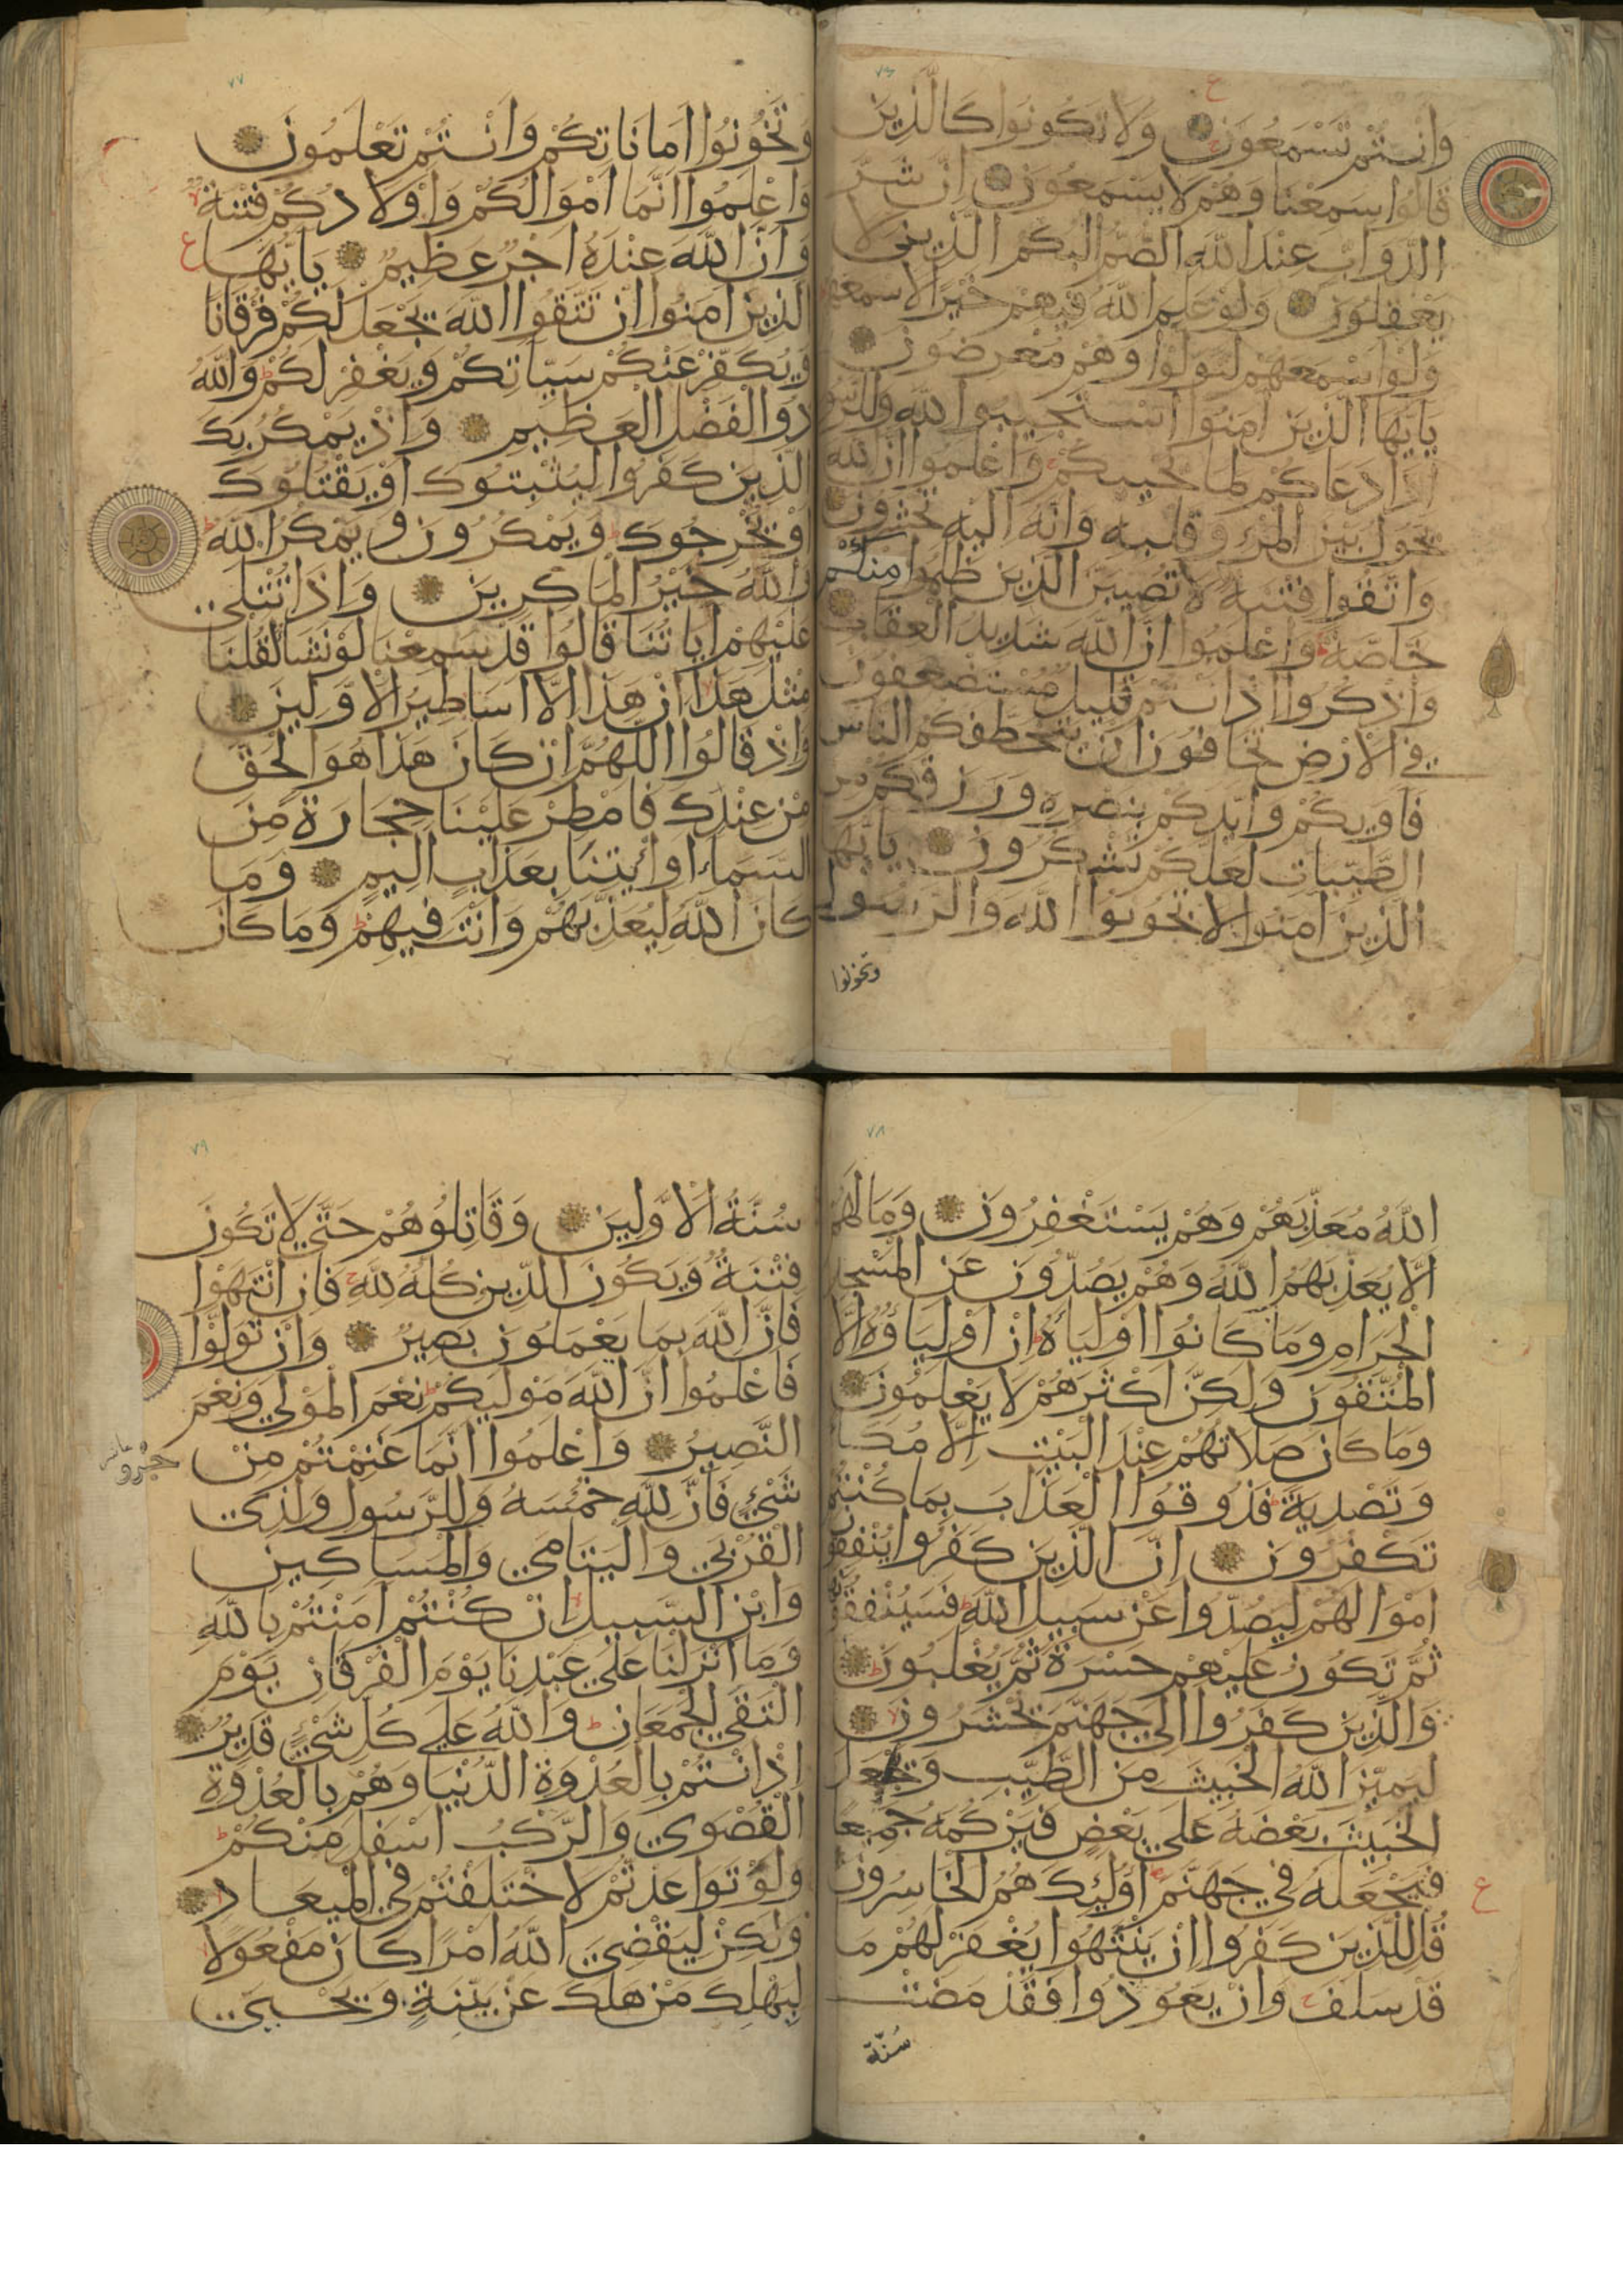 ٧٦
ع
وَاَنْتُمْ تَسْمَعُونَ وَلَا تَكُونُوا كَالَّذِينَ
قَالُوا سَمِعْنَا وَهُمْ لَا يَسْمَعُونَ اِنَّ شَرَّ
الدَّوَابِّ عِنْدَ اللّٰهِ الصُّمُّ الْبُكْمُ الَّذِينَ لَا
يَعْقِلُونَ وَلَوْ عَلِمَ اللّٰهُ فِيهِمْ خَيْرًا لَاَسْمَعَهُمْ
وَلَوْ اَسْمَعَهُمْ لَتَوَلَّوْا وَهُمْ مُعْرِضُونَ
يَا اَيُّهَا الَّذِينَ اٰمَنُوا اسْتَجِيبُوا لِلّٰهِ وَلِلرَّسُولِ
اِذَا دَعَاكُمْ لِمَا يُحْيِيكُمْ وَاعْلَمُوا اَنَّ اللّٰهَ
يَحُولُ بَيْنَ الْمَرْءِ وَقَلْبِهِ وَاَنَّهُ اِلَيْهِ تُحْشَرُونَ
وَاتَّقُوا فِتْنَةً لَا تُصِيبَنَّ الَّذِينَ ظَلَمُوا مِنْكُمْ
خَاصَّةً وَاعْلَمُوا اَنَّ اللّٰهَ شَدِيدُ الْعِقَابِ
وَاذْكُرُوا اِذْ اَنْتُمْ قَلِيلٌ مُسْتَضْعَفُونَ
فِي الْاَرْضِ تَخَافُونَ اَنْ يَتَخَطَّفَكُمُ النَّاسُ
فَاٰوٰيكُمْ وَاَيَّدَكُمْ بِنَصْرِهِ وَرَزَقَكُمْ مِنَ
الطَّيِّبَاتِ لَعَلَّكُمْ تَشْكُرُونَ يَا اَيُّهَا
الَّذِينَ اٰمَنُوا لَا تَخُونُوا اللّٰهَ وَالرَّسُولَ
وتخونوا
٧٧
وَتَخُونُوا اَمَانَاتِكُمْ وَاَنْتُمْ تَعْلَمُونَ
وَاعْلَمُوا اَنَّمَا اَمْوَالُكُمْ وَاَوْلَادُكُمْ فِتْنَةٌ
وَاَنَّ اللّٰهَ عِنْدَهُ اَجْرٌ عَظِيمٌ يَا اَيُّهَا
ع
الَّذِينَ اٰمَنُوا اِنْ تَتَّقُوا اللّٰهَ يَجْعَلْ لَكُمْ فُرْقَانًا
وَيُكَفِّرْ عَنْكُمْ سَيِّاٰتِكُمْ وَيَغْفِرْ لَكُمْ وَاللّٰهُ
ذُو الْفَضْلِ الْعَظِيمِ وَاِذْ يَمْكُرُ بِكَ
الَّذِينَ كَفَرُوا لِيُثْبِتُوكَ اَوْ يَقْتُلُوكَ
اَوْ يُخْرِجُوكَ وَيَمْكُرُونَ وَيَمْكُرُ اللّٰهُ
وَاللّٰهُ خَيْرُ الْمَاكِرِينَ وَاِذَا تُتْلٰى
عَلَيْهِمْ اٰيَاتُنَا قَالُوا قَدْ سَمِعْنَا لَوْ نَشَاءُ لَقُلْنَا
مِثْلَ هٰذَا اِنْ هٰذَا اِلَّا اَسَاطِيرُ الْاَوَّلِينَ
وَاِذْ قَالُوا اللّٰهُمَّ اِنْ كَانَ هٰذَا هُوَ الْحَقَّ
مِنْ عِنْدِكَ فَاَمْطِرْ عَلَيْنَا حِجَارَةً مِنَ
السَّمَاءِ اَوِ ائْتِنَا بِعَذَابٍ اَلِيمٍ وَمَا
كَانَ اللّٰهُ لِيُعَذِّبَهُمْ وَاَنْتَ فِيهِمْ وَمَا كَانَ
٧٨
اللّٰهُ مُعَذِّبَهُمْ وَهُمْ يَسْتَغْفِرُونَ وَمَا لَهُمْ
اَلَّا يُعَذِّبَهُمُ اللّٰهُ وَهُمْ يَصُدُّونَ عَنِ الْمَسْجِدِ
الْحَرَامِ وَمَا كَانُوا اَوْلِيَاءَهُ اِنْ اَوْلِيَاؤُهُ اِلَّا
الْمُتَّقُونَ وَلٰكِنَّ اَكْثَرَهُمْ لَا يَعْلَمُونَ
وَمَا كَانَ صَلَاتُهُمْ عِنْدَ الْبَيْتِ اِلَّا مُكَاءً
وَتَصْدِيَةً فَذُوقُوا الْعَذَابَ بِمَا كُنْتُمْ
تَكْفُرُونَ اِنَّ الَّذِينَ كَفَرُوا يُنْفِقُونَ
اَمْوَالَهُمْ لِيَصُدُّوا عَنْ سَبِيلِ اللّٰهِ فَسَيُنْفِقُونَهَا
ثُمَّ تَكُونُ عَلَيْهِمْ حَسْرَةً ثُمَّ يُغْلَبُونَ
وَالَّذِينَ كَفَرُوا اِلٰى جَهَنَّمَ يُحْشَرُونَ
لِيَمِيزَ اللّٰهُ الْخَبِيثَ مِنَ الطَّيِّبِ وَيَجْعَلَ
الْخَبِيثَ بَعْضَهُ عَلٰى بَعْضٍ فَيَرْكُمَهُ جَمِيعًا
فَيَجْعَلَهُ فِي جَهَنَّمَ اُولٰئِكَ هُمُ الْخَاسِرُونَ
ع
قُلْ لِلَّذِينَ كَفَرُوا اِنْ يَنْتَهُوا يُغْفَرْ لَهُمْ مَا
قَدْ سَلَفَ وَاِنْ يَعُودُوا فَقَدْ مَضَتْ
سُنّة
٧٩
سُنَّةُ الْاَوَّلِينَ وَقَاتِلُوهُمْ حَتّٰى لَا تَكُونَ
فِتْنَةٌ وَيَكُونَ الدِّينُ كُلُّهُ لِلّٰهِ فَاِنِ انْتَهَوْا
فَاِنَّ اللّٰهَ بِمَا يَعْمَلُونَ بَصِيرٌ وَاِنْ تَوَلَّوْا
فَاعْلَمُوا اَنَّ اللّٰهَ مَوْلٰيكُمْ نِعْمَ الْمَوْلٰى وَنِعْمَ
النَّصِيرُ وَاعْلَمُوا اَنَّمَا غَنِمْتُمْ مِنْ
شَيْءٍ فَاَنَّ لِلّٰهِ خُمُسَهُ وَلِلرَّسُولِ وَلِذِي
الْقُرْبٰى وَالْيَتَامٰى وَالْمَسَاكِينِ
وَابْنِ السَّبِيلِ اِنْ كُنْتُمْ اٰمَنْتُمْ بِاللّٰهِ
وَمَا اَنْزَلْنَا عَلٰى عَبْدِنَا يَوْمَ الْفُرْقَانِ يَوْمَ
الْتَقَى الْجَمْعَانِ وَاللّٰهُ عَلٰى كُلِّ شَيْءٍ قَدِيرٌ
اِذْ اَنْتُمْ بِالْعُدْوَةِ الدُّنْيَا وَهُمْ بِالْعُدْوَةِ
الْقُصْوٰى وَالرَّكْبُ اَسْفَلَ مِنْكُمْ
وَلَوْ تَوَاعَدْتُمْ لَاخْتَلَفْتُمْ فِي الْمِيعَادِ
وَلٰكِنْ لِيَقْضِيَ اللّٰهُ اَمْرًا كَانَ مَفْعُولًا
لِيَهْلِكَ مَنْ هَلَكَ عَنْ بَيِّنَةٍ وَيَحْيٰى